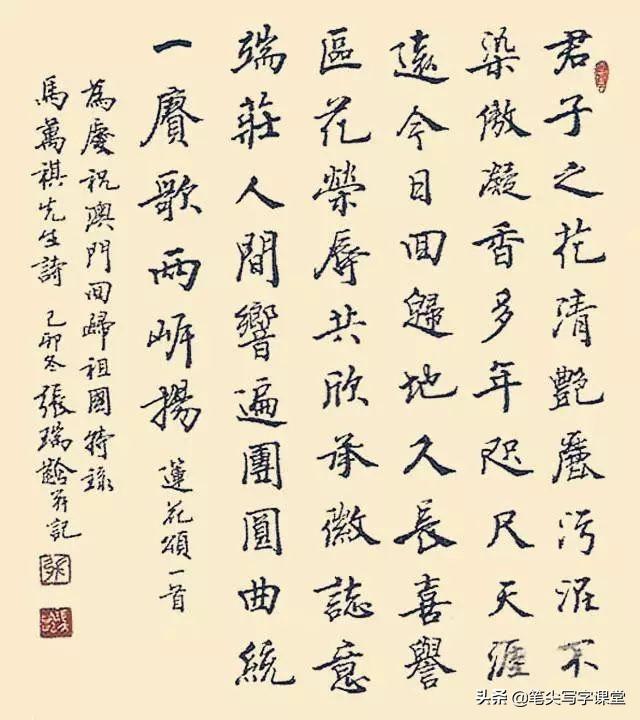 君子之花清艷塵污泥不
染傲凝香多年咫尺天涯
遠今日回歸地久長喜譽
區花榮辱共欣承徽誌意
端莊人間響遍團圓曲統
一賡歌兩岸揚 蓮花頌一首
為慶祝澳門回歸祖國特錄
馬萬祺先生詩 己卯冬張瑞齡并記
头条 @笔尖写字课堂